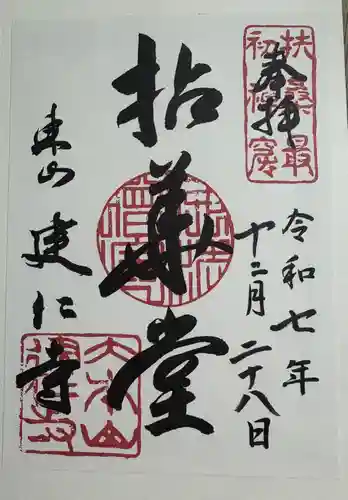 扶桑最
初禅窟
奉拝
令和七年
十二月二十八日
拈華堂
東山
建仁寺